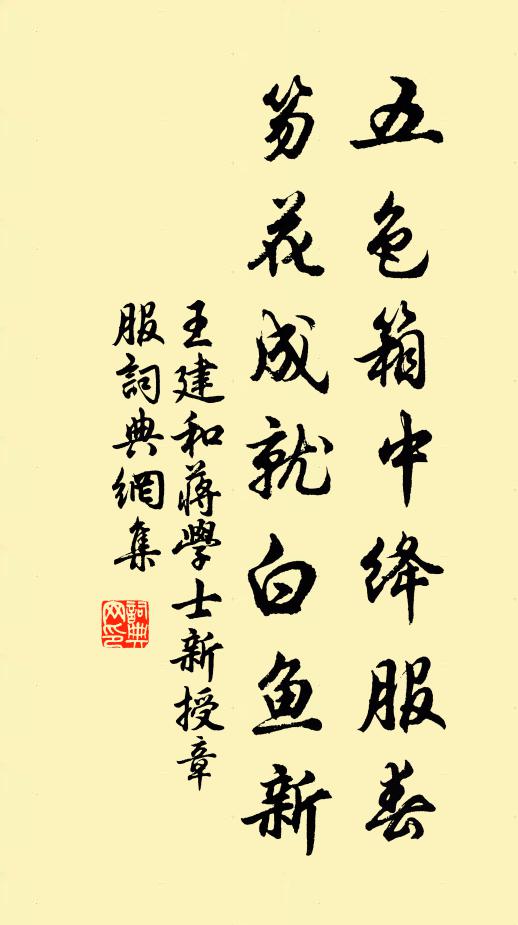 五色箱中绛服春
笏花成就白鱼新
王建和蔣學士新授章
服詞典網集
詞典網印